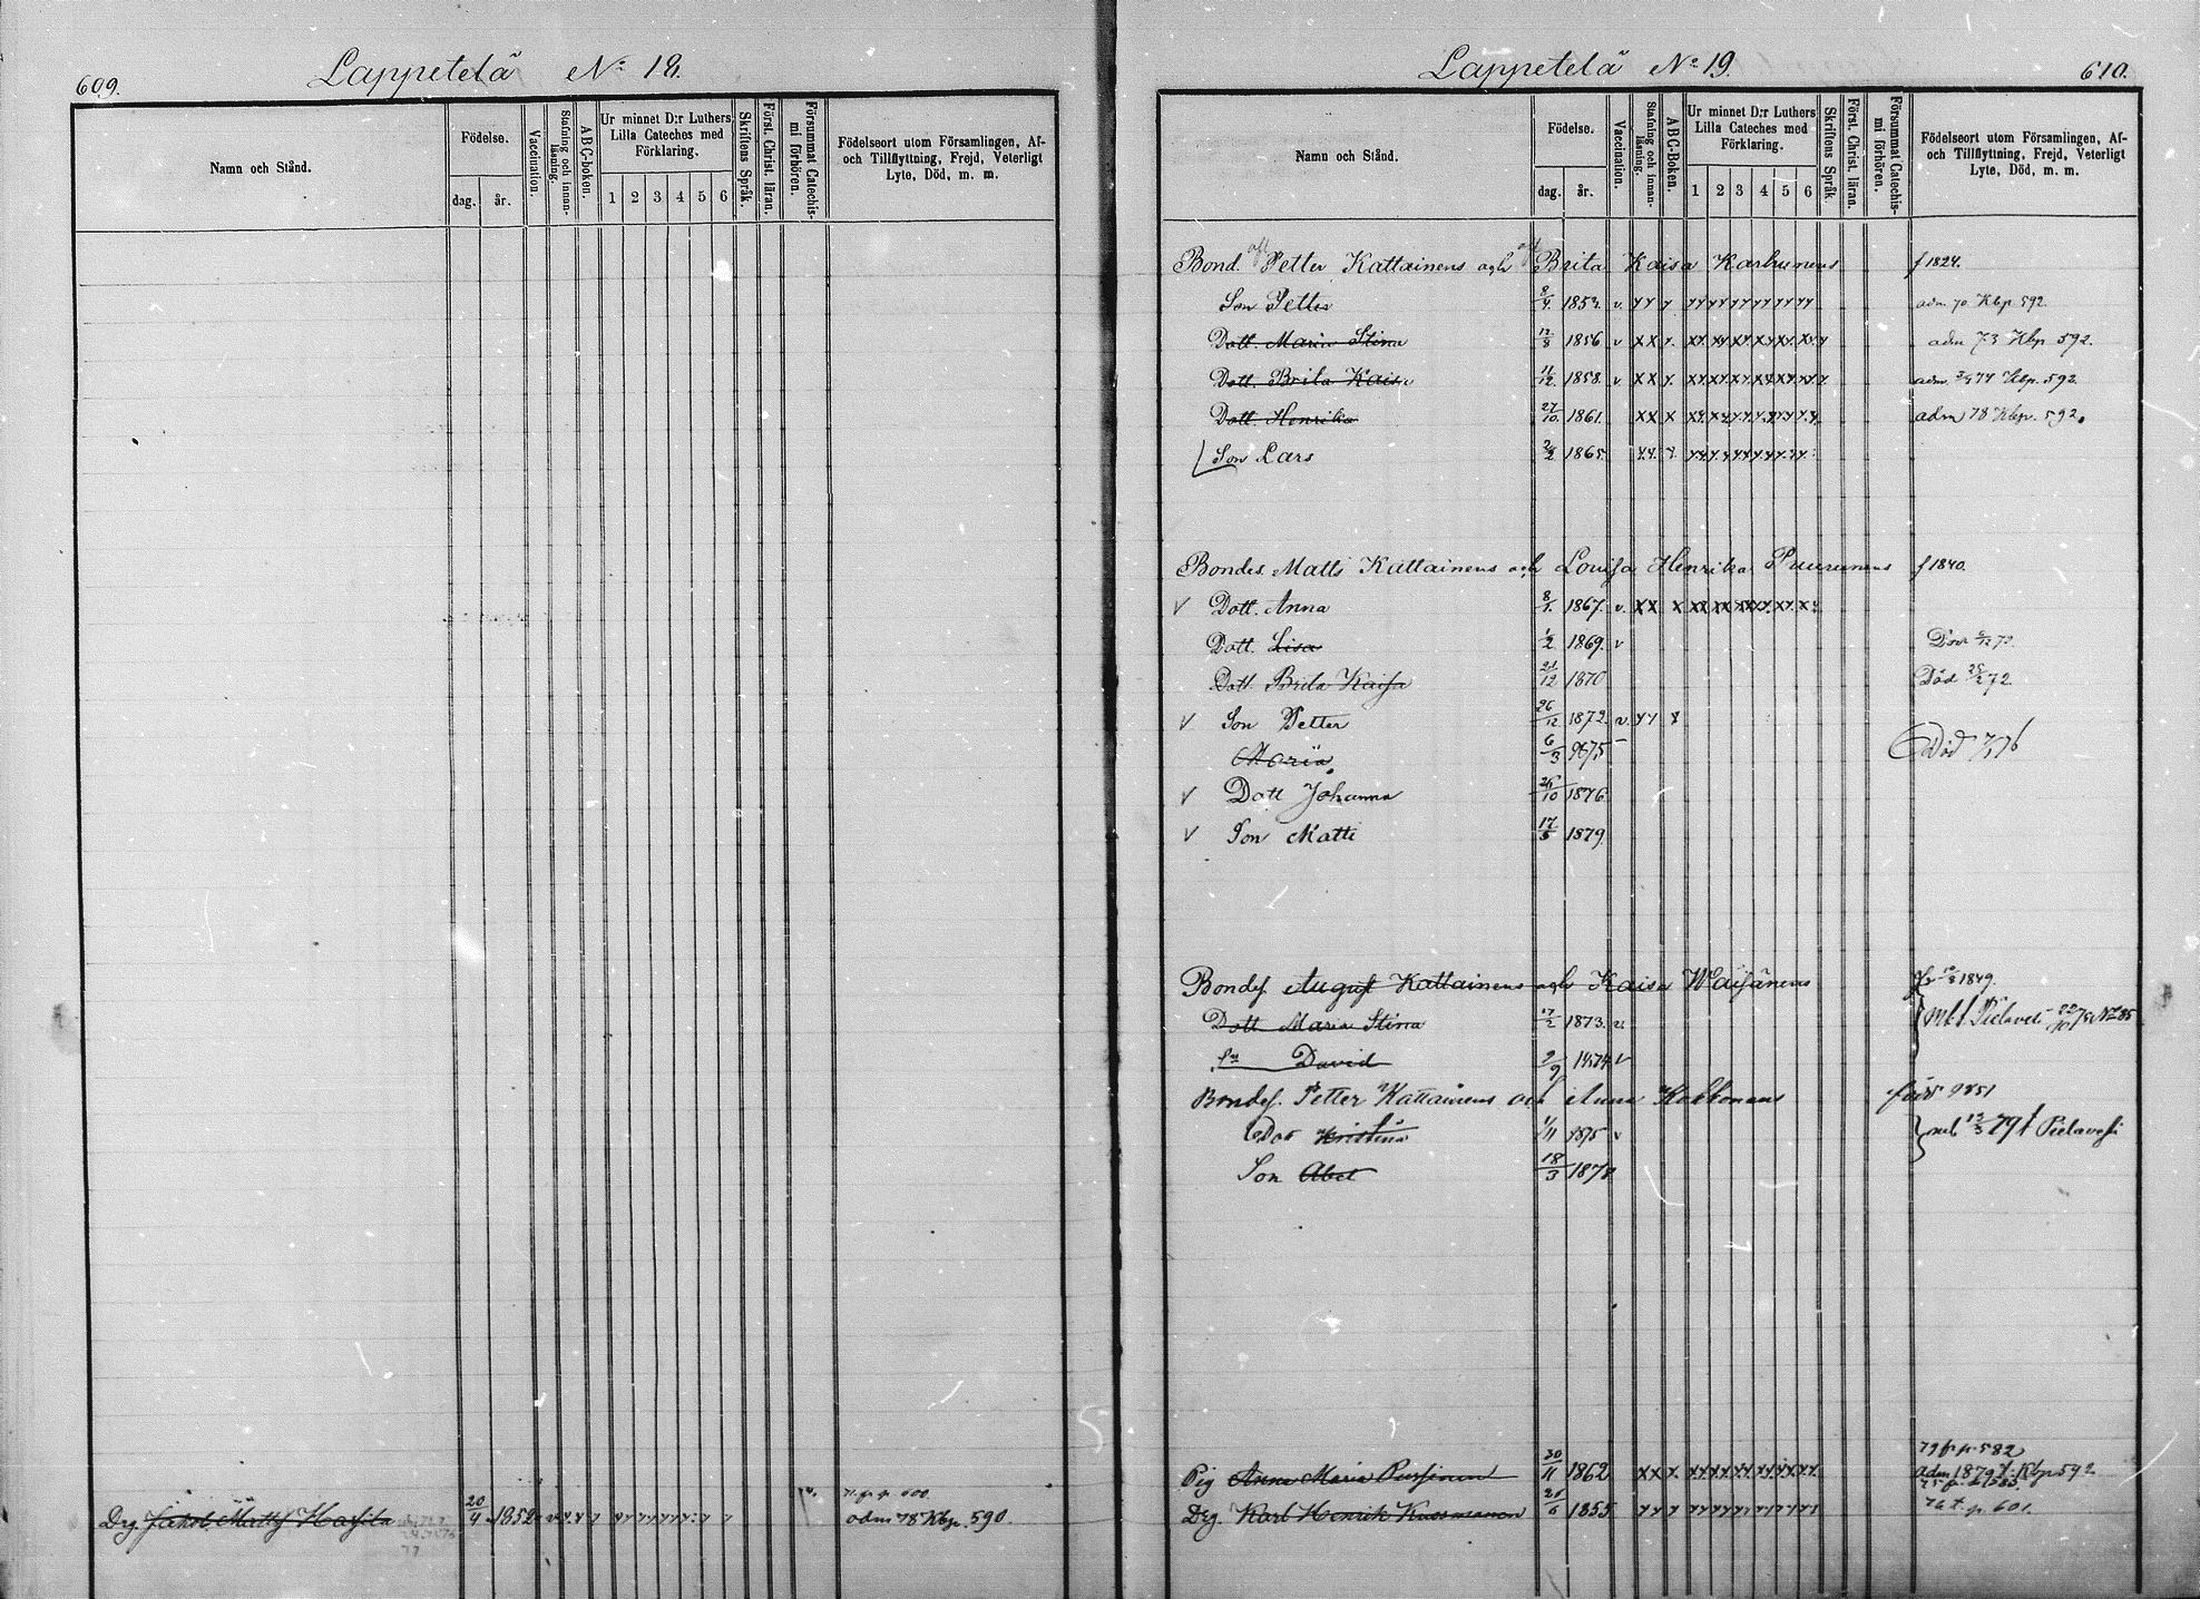 609.
Lappetelä No 18.
Namn och Stånd.
Födelse.
dag.
år.
Vaccination.
Stafning och innan-läsning.
ABC-boken.
Ur minnet D:r Luthers Lilla Cateches med Förklaring.
1 2 3 4 5 6
Skriftens Språk.
Först. Christ. läran.
Försummat Catechis-mi förhören.
Födelseort utom Församlingen, Af-
och Tillflyttning, Frejd, Veterligt
Lyte, Död, m. m.
Drg. Jakob Matts 20/4 1852 adm 78 Kbp. 590.
Lappetelä No 19.
610.
Namn och Stånd.
Födelse.
dag.
år.
Vaccination.
Stafning och innan-läsning.
ABC-Boken.
Ur minnet D:r Luthers Lilla Cateches med Förklaring.
1 2 3 4 5 6
Skriftens Språk
Först. Christ. läran.
Försummat Catechis-mi förhören.
Födelseort utom Församlingen, Af-
och Tillflyttning, Frejd, Veterligt
Lyte, Död, m. m.
Bond. Petter Kattainens och Brita Kaisa Karhunens f 1824.
Son Petter 8/4 1852 v. adm 70 Kbp 592.
Dott. Maria Stina 12/8 1856 v adm 73 Kbp 592.
Dott. Brita Kaisa 11/12 1858. v. 74 Kbp. 592.
Dott. Henrika 27/10 1861. adm 78 Kbp. 592.
Son Lars 1865
Bondes. Matts Kattainens och Lovisa Henrika Puurunens f 1840.
Dott. Anna 8/1 1867. v.
Dott. Lisa 1/2 1869. v
Dott. Brita Kaisa 21/12 1870 Död 72.
Son Petter 26/12 1872. v.
Maria 6/3 75 Död 76
Dott Johanna 26/10 1876
Son Matti 17/5 1879.
Bondes. August Kattainens och Kaisa Waisänens 1849.
Dott Maria Stina 17/2 1873. v.
Sn David 2/9 1874 v
Bondes. Petter Kattainens och Anna Kokkonens född 1851
Dot Kristina 1/11 1875 v 79 t Pielavesi
Son Abel 18/3 1878
79 fr p. 582
Pig Anna Maria 30/11 1862 adm 1879 Kbp 592
Drg. Karl Henrik Kuosmanen 1855 76 t. p. 601.